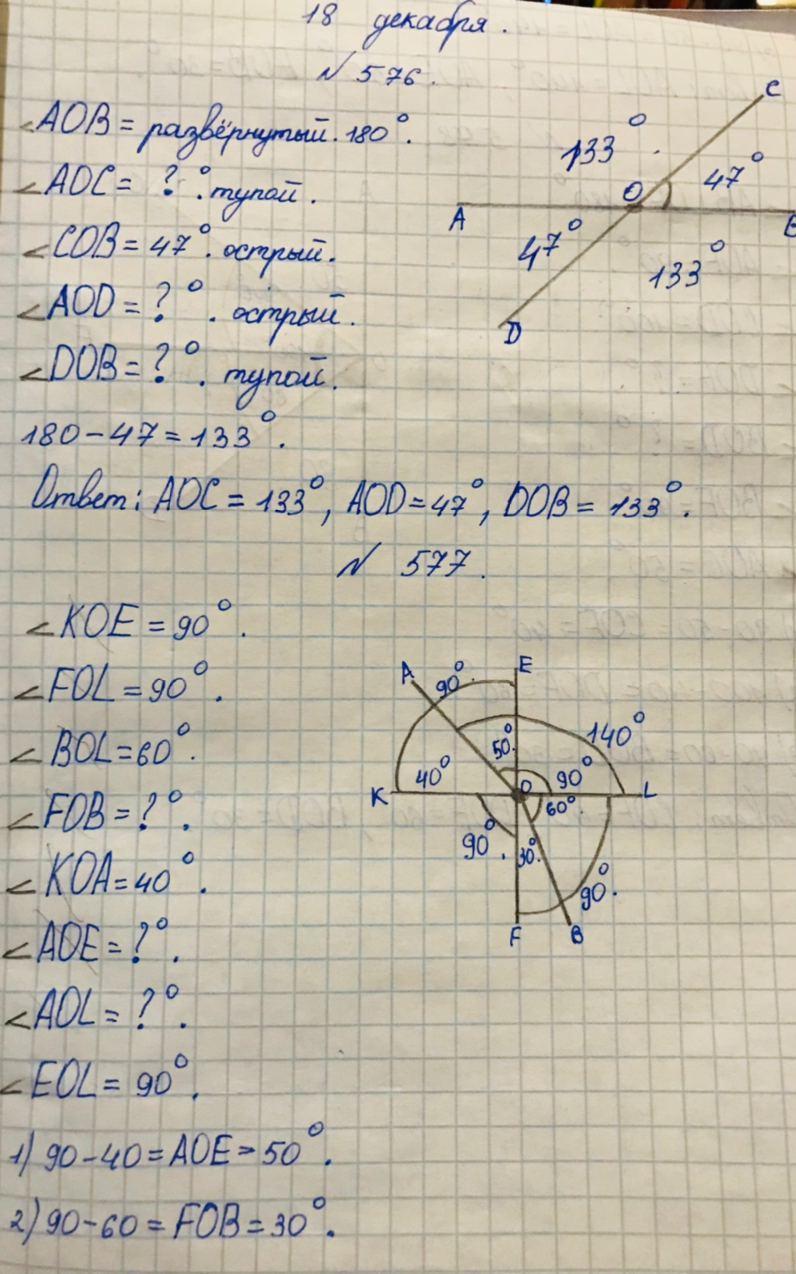 18 декабря.
№ 576.
∠AOB = развёрнутый. 180°.
∠AOC = ? °. тупой.
∠COB = 47°. острый.
∠AOD = ? °. острый.
∠DOB = ? °. тупой.
180 - 47 = 133°.
Ответ: AOC = 133°, AOD = 47°, DOB = 133°.
C
133°.
47°
O
A
B
47°
133°
D
№ 577.
∠KOE = 90°.
∠FOL = 90°.
∠BOL = 60°.
∠FOB = ? °.
∠KOA = 40°.
∠AOE = ? °.
∠AOL = ? °.
∠EOL = 90°.
A
90°
E
50°
140°
40°
90°
K
O
L
60°
90°.
30°
90°.
F
B
1) 90 - 40 = AOE = 50°.
2) 90 - 60 = FOB = 30°.